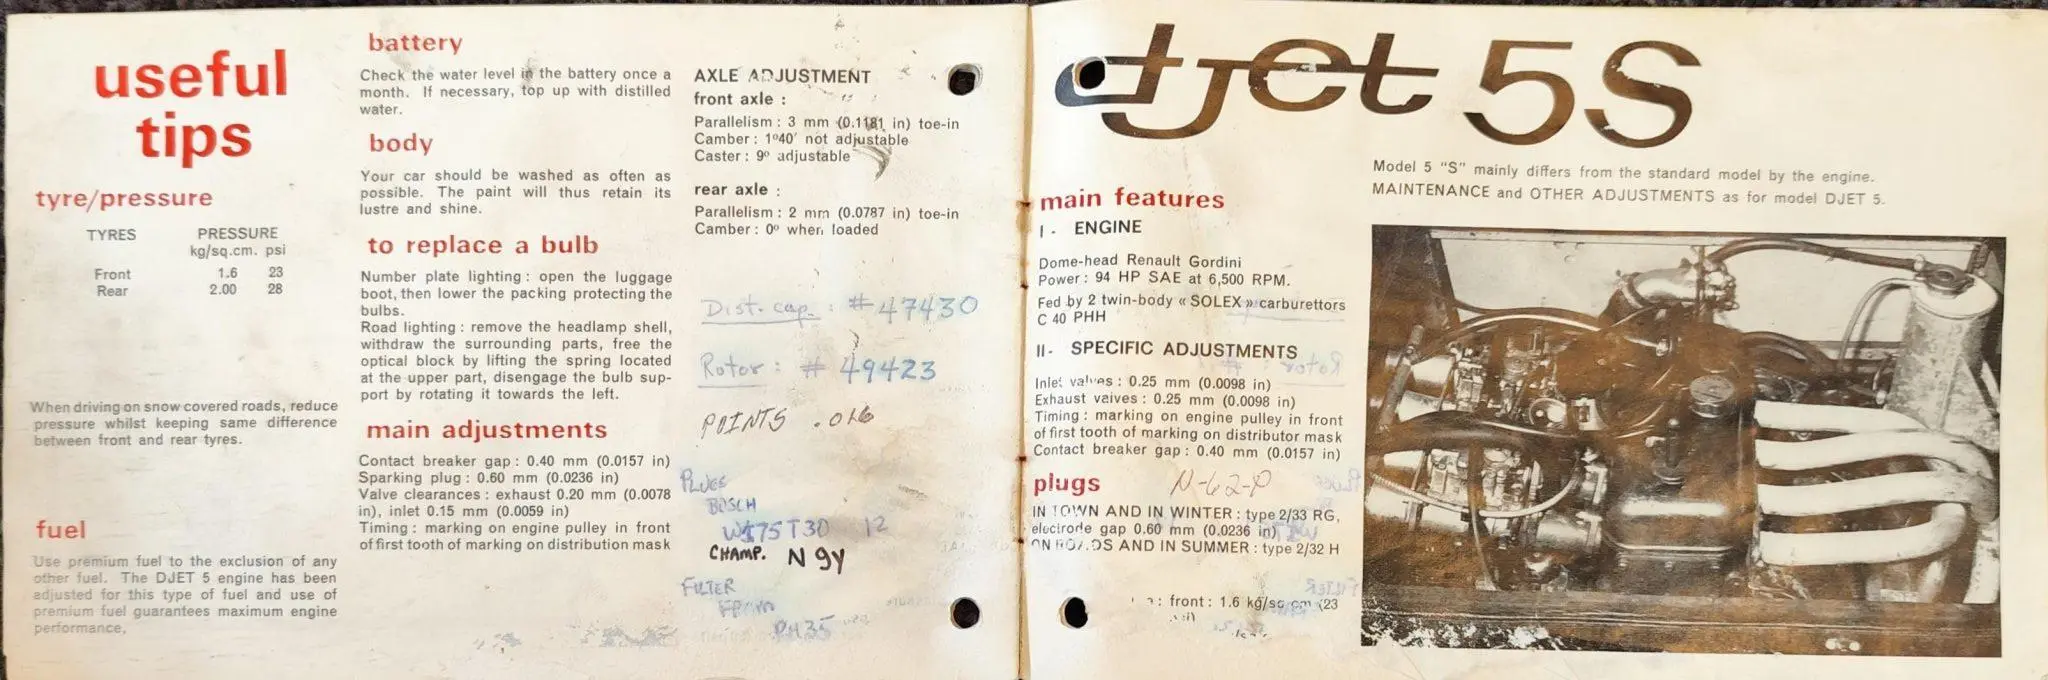 useful
tips
tyre/pressure
TYRES PRESSURE
kg/sq.cm. psi
Front 1.6 23
Rear 2.00 28
When driving on snow covered roads, reduce
pressure whilst keeping same difference
between front and rear tyres.
fuel
Use premium fuel to the exclusion of any
other fuel. The DJET 5 engine has been
adjusted for this type of fuel and use of
premium fuel guarantees maximum engine
performance.
battery
Check the water level in the battery once a
month. If necessary, top up with distilled
water.
body
Your car should be washed as often as
possible. The paint will thus retain its
lustre and shine.
to replace a bulb
Number plate lighting : open the luggage
boot, then lower the packing protecting the
bulbs.
Road lighting : remove the headlamp shell,
withdraw the surrounding parts, free the
optical block by lifting the spring located
at the upper part, disengage the bulb sup-
port by rotating it towards the left.
main adjustments
Contact breaker gap : 0.40 mm (0.0157 in)
Sparking plug : 0.60 mm (0.0236 in)
Valve clearances : exhaust 0.20 mm (0.0078
in), inlet 0.15 mm (0.0059 in)
Timing : marking on engine pulley in front
of first tooth of marking on distribution mask
AXLE ADJUSTMENT
front axle :
Parallelism : 3 mm (0.1181 in) toe-in
Camber : 1º40′ not adjustable
Caster : 9º adjustable
rear axle :
Parallelism : 2 mm (0.0787 in) toe-in
Camber : 0º when loaded
Dist. cap. : # 47430
Rotor : # 49423
POINTS .016
PLUGS
BOSCH
W175T30 12
CHAMP. N 9y
FILTER
FRAM
PH35
djet 5S
Model 5 "S" mainly differs from the standard model by the engine.
MAINTENANCE and OTHER ADJUSTMENTS as for model DJET 5.
main features
I - ENGINE
Dome-head Renault Gordini
Power : 94 HP SAE at 6,500 RPM.
Fed by 2 twin-body « SOLEX » carburettors
C 40 PHH
II - SPECIFIC ADJUSTMENTS
Inlet valves : 0.25 mm (0.0098 in)
Exhaust valves : 0.25 mm (0.0098 in)
Timing : marking on engine pulley in front
of first tooth of marking on distributor mask
Contact breaker gap : 0.40 mm (0.0157 in)
plugs N-62-P
IN TOWN AND IN WINTER : type 2/33 RG,
electrode gap 0.60 mm (0.0236 in)
ON ROADS AND IN SUMMER : type 2/32 H
: front : 1.6 kg/sq cm (23